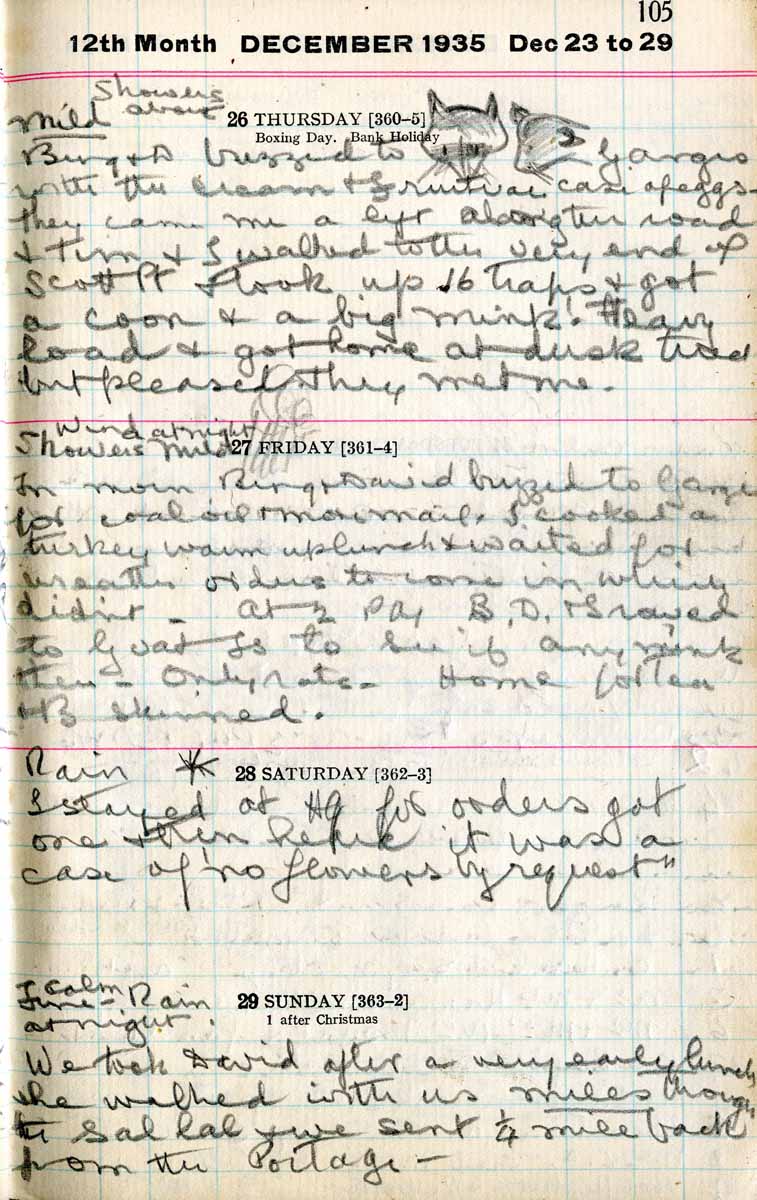 105
12th Month DECEMBER 1935 Dec 23 to 29
Showers
Mild about
26 THURSDAY [360-5]
Boxing Day. Bank Holiday
Bing & D buzzed to Gargis
with the cream & case of eggs -
they came me a lift along the road
& Tim & I walked to the very end of
Scott Pt & took up 16 traps & got
a coon & a big mink! Heavy
load & got home at dusk tired
but pleased. They met me.
Wind at night
Showers mild
27 FRIDAY [361-4]
In morn Bing & David buzzed to Gargis
for coal oil & more mail. I cooked a
turkey warm up lunch & waited for
wreath orders to come in which
didint - At 2 PM B, D, & I rowed
to Goat Is to see if any mink
there - Only rats - Home for tea
& B skinned.
Rain
28 SATURDAY [362-3]
I stayed at HQ for orders got
one & then it was a
case of "no flowers by request"
Calm
Fine - Rain
at night.
29 SUNDAY [363-2]
1 after Christmas
We took David after a very early lunch
& he walked with us miles through
the Sallal & we sent 1/4 mile back
from the Portage -